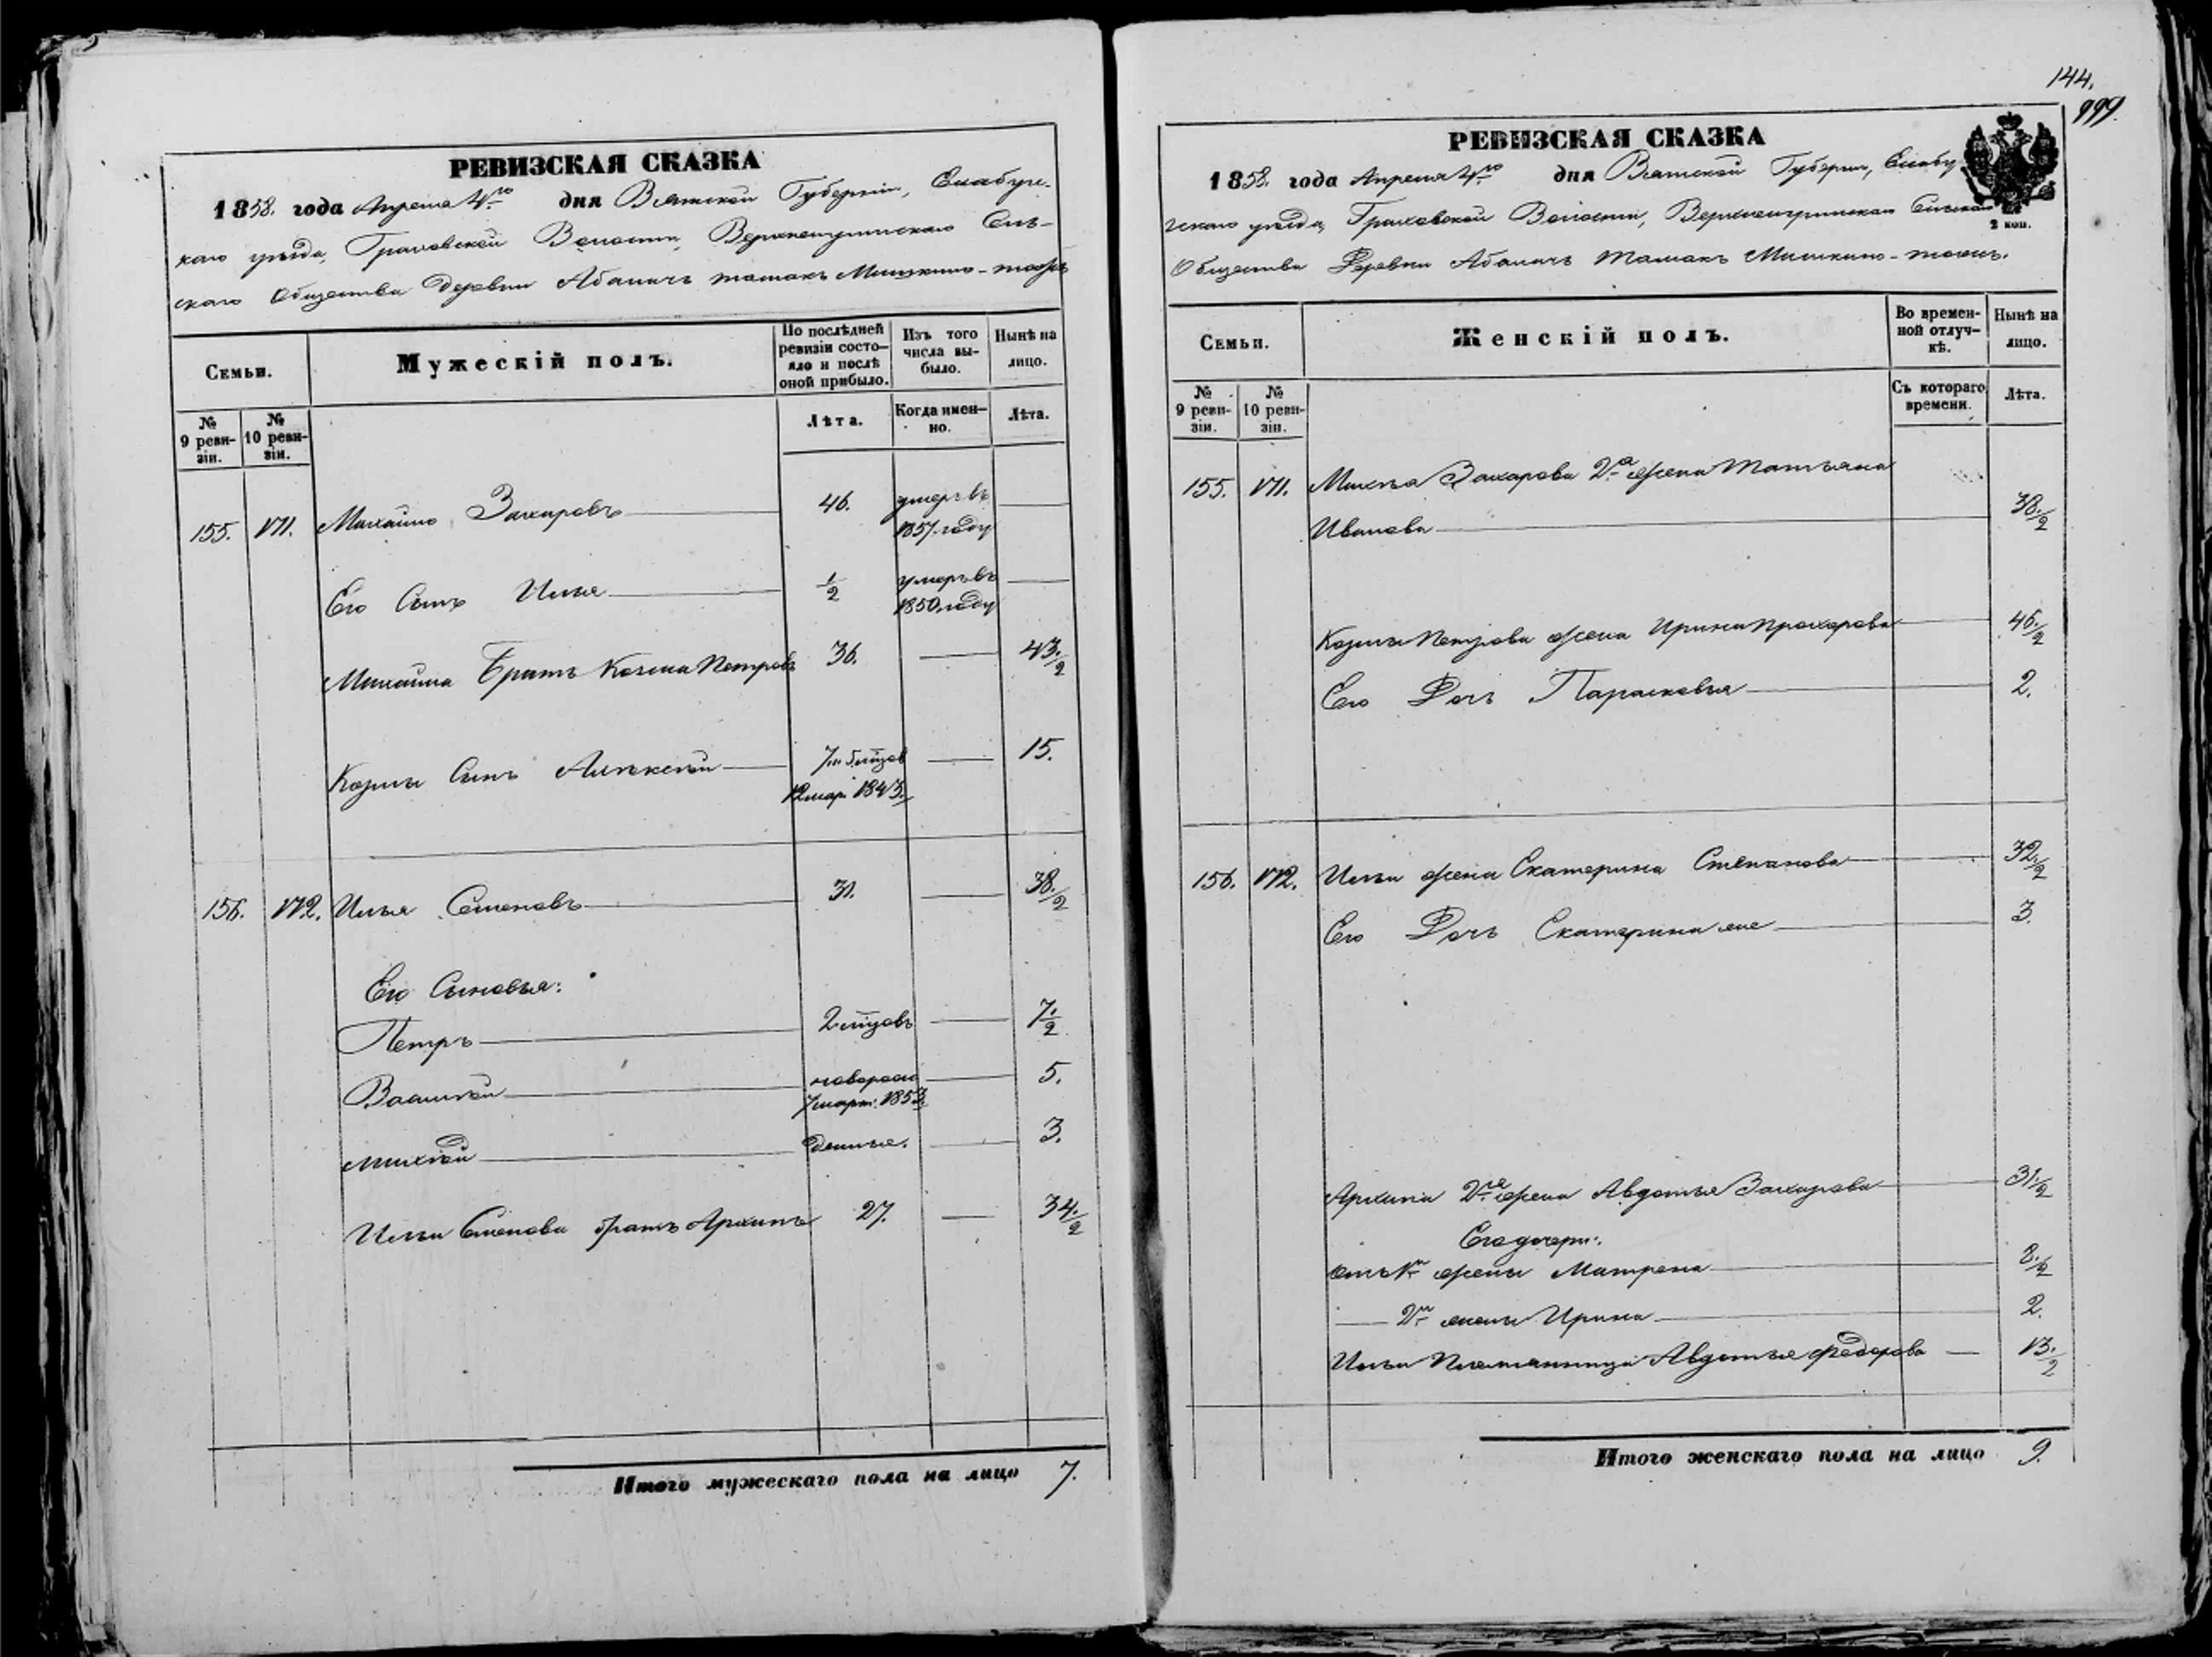 РЕВИЗСКАЯ СКАЗКА
1858. года Апреля 4го дня Вятской Губерніи, Елабуж-
каго уѣзда, Граховской Волости, Верхнеигринскаго Сель-
скаго Общества деревни Абаличь
Семьи.
Мужескій полъ.
По послѣдней ревизіи состо-
яло и послѣ оной прибыло.
Изъ того числа вы-
было.
Нынѣ на лицо.
№ 9 реви-
зіи.
№ 10 реви-
зіи.
Лѣта.
Когда имен-
но.
Лѣта.
155. 171. Михайло Захаровъ 46. умеръ въ 1857. году
Его Сынъ Илья ½ умеръ въ 1850 году
Михайла Братъ Козма Петровъ 36. 43.½
Козмы Сынъ Алѣксѣй 15.
156. 172. Илья Семеновъ 31. 38.½
Его Сыновья:
Петръ 7.½
Василѣй 5.
3.
Ильи Семенова братъ Архипъ 27. 34.½
Итого мужескаго пола на лицо 7.
144.
999.
РЕВИЗСКАЯ СКАЗКА
1858. года Апреля 4го дня Вятской Губерніи, Елабу-
жскаго уѣзда, Граховской Волости, Верхнеигринскаго Сельскаго
2 коп.
Общества Деревни Абаличь
Семьи.
Женскій полъ.
Во времен-
ной отлуч-
кѣ.
Нынѣ на лицо.
№ 9 реви-
зіи.
№ 10 реви-
зіи.
Съ котораго времени.
Лѣта.
155. 171. Захарова 2я жена Татьяна
Иванова 38.½
Козмы Петрова жена Ирина Прохорова 45.½
Его Дочь Парасковья 2.
156. 172. Ильи жена Екатерина Степанова 32.½
Его Дочь Екатерина 3.
Архипа 2я жена Авдотья Захарова 31.½
Его дочери:
отъ 1й жены Матрена 8.½
2й жены Ирина 2.
Ильи Племянница Авдотья Федорова 13.½
Итого женскаго пола на лицо 9.